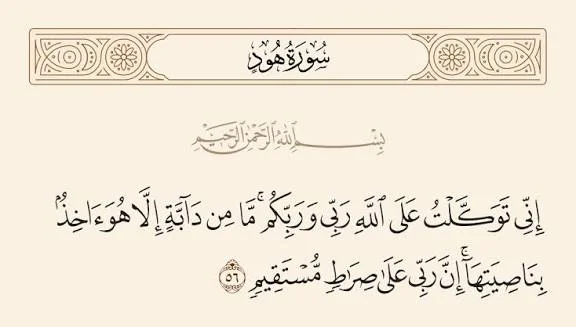 سُورَةُ هُودٍ
بِسْمِ ٱللَّهِ ٱلرَّحْمَٰنِ ٱلرَّحِيمِ
إِنِّي تَوَكَّلْتُ عَلَى ٱللَّهِ رَبِّي وَرَبِّكُمۚ مَّا مِن دَآبَّةٍ إِلَّا هُوَ ءَاخِذُۢ
بِنَاصِيَتِهَآۚ إِنَّ رَبِّي عَلَىٰ صِرَٰطٖ مُّسۡتَقِيمٖ ٥٦